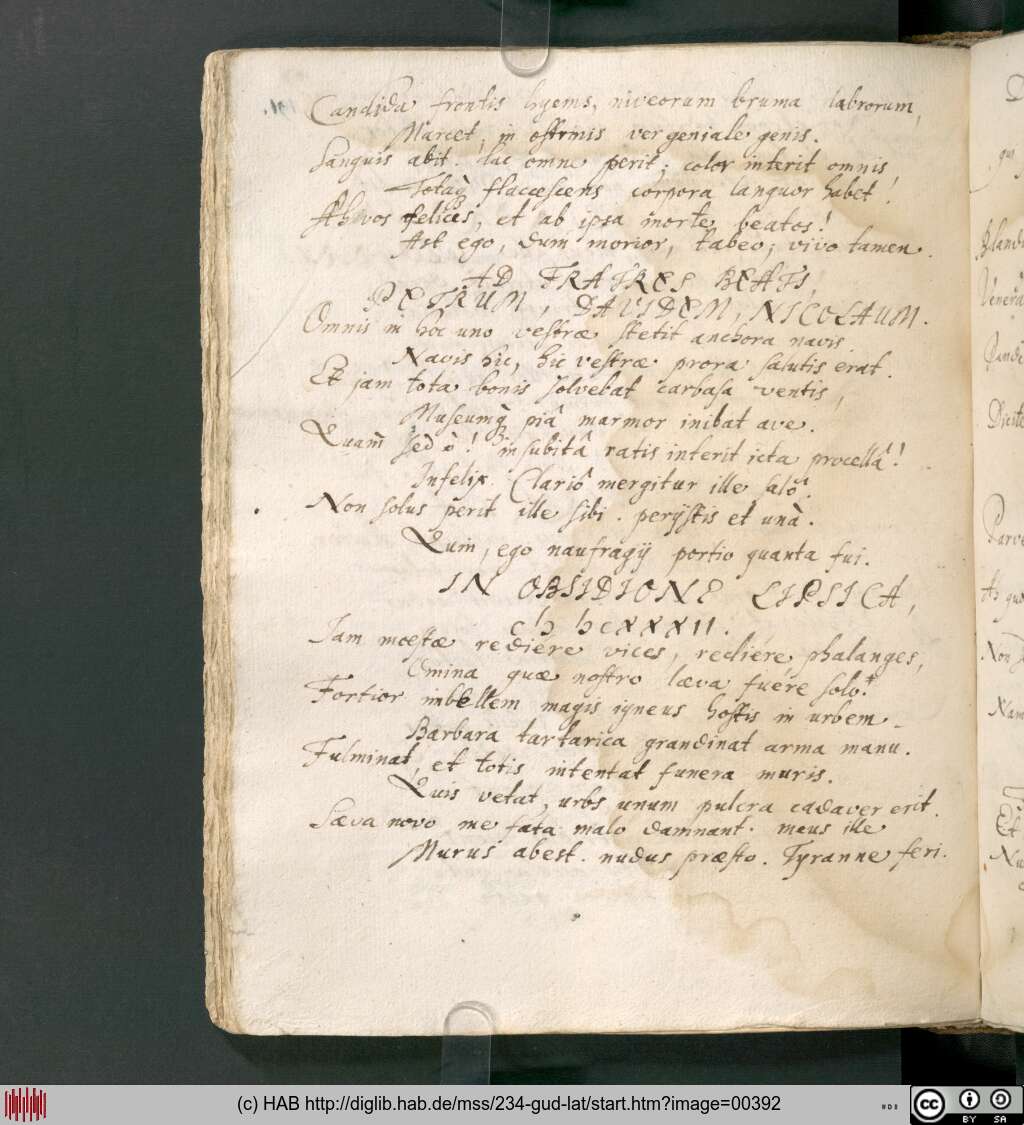 Candida frontis hyems, niveorum bruma labrorum,
Marcet, in offrmis ver geniale genis.
Sanguis abit. lac omne perit; color interit omnis
Totaq̀ flaccescens corpora languor habet!
Ah vos felices, et ab ipsa morte beatos!
Ast ego, dum morior, tabeo; vivo tamen.
AD FRATRES BEATS,
PETRUM, DAVIDEM, NICOLAUM.
Omnis in hoc uno vestræ stetit anchora navis
Navis hic, hic vestræ prora salutis erat.
Et jam tota bonis solvebat carbasa ventis,
Museumq̀ piâ marmor inibat ave.
Quam sed ò! in subitâ ratis interit icta procellâ!
Infelix Clariô mergitur ille salô.
Non solus perit ille sibi. perijstis et unà.
Quin, ego naufragij portio quanta fui.
IN OBSIDIONE LIPSICA,
cIↃ IↃcXXXII.
Iam moestæ rediére vices, rediére phalanges,
Omina quæ nostro læva fuére solo.
Fortior imbellem magis igneus hostis in urbem
Barbara tartarica grandinat arma manu.
Fulminat, et totis intentat funera muris.
Quis vetat, urbs unum pulcra cadaver erit.
Sæva novo me fata malo damnant. meus ille
Murus abest. nudus præsto. Tyranne feri.
(c) HAB http://diglib.hab.de/mss/234-gud-lat/start.htm?image=00392
cc BY SA